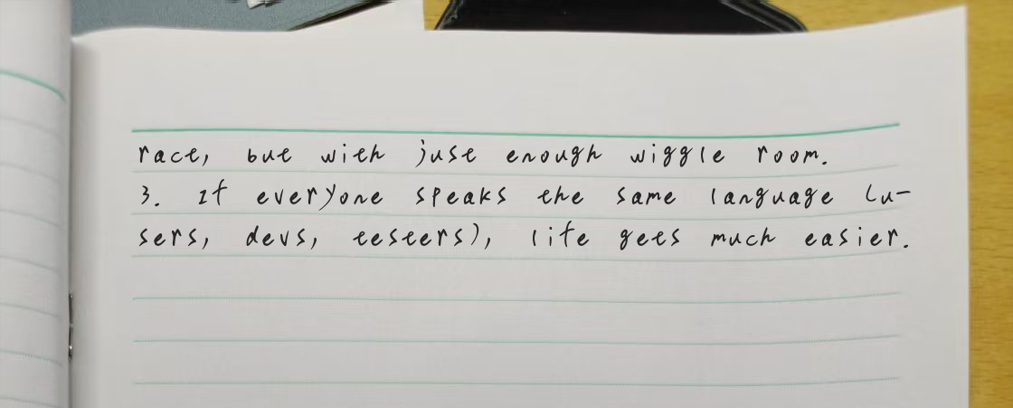 race, but with just enough wiggle room.
3. If everyone speaks the same language (u-
sers, devs, testers), life gets much easier.